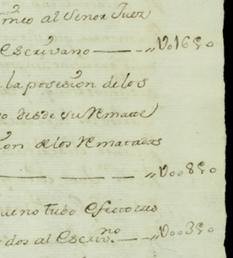 mto al Señor Juez
escrivano — „ V016§0
la posesion de los
desde su Remate
ion de los Rematadas
— — „ V008§0
bueno tubo efecto
dos al Escrivno. — „ V003§0